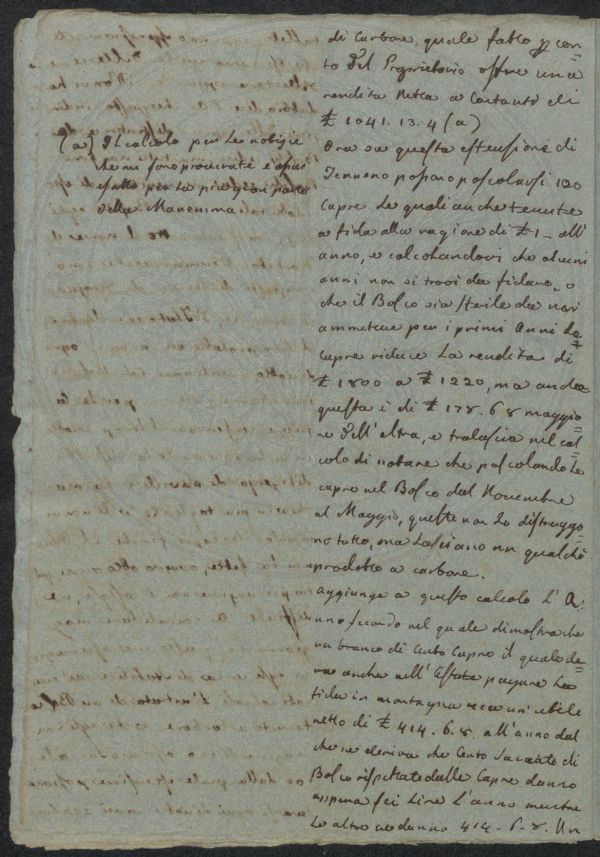 di Carbone, quale fatto p con
to del Proprietario offre una
rendita netta a contanti di
£ 1041. 13. 4 (a)
Ora su questa estensione di
Terreno possono pascolarsi 120
Capre le quali anche tenute
a fida alla ragione di £ 1_ all'
anno, e calcolandovi che alcuni
anni non si trovi da fidare, e
che il Bosco sia sterile da non
ammettere per i primi Anni le
Capre riduce la rendita di
£ 1800 a £ 1220, ma anche
questa è di £ 178. 6 8 maggio=
re dell'altra, e tralascia nel cal=
colo di notare che pascolando le
capre nel Bosco dal Novembre
al Maggio, queste non lo distruggo=
no tutto, ma lasciano un qualche
prodotto a carbone.
Aggiunge a questo calcolo l'A:
uno secondo nel quale dimostra che
un branco di Cento Capre il quale de=
va anche nell'Estate pagare la
fida in montagna reca un'utile
netto di £ 414. 6. 8. all'anno dal
che ne deriva che Cento Saccate di
Bosco rispettate dalle Capre danno
appena sei Lire l'anno mentre
le altre ne danno 414. 6. 8. Un
(a) Il calcolo per le notizie
che mi sono procurate è assai
esatto per la più gran parte
della Maremma.